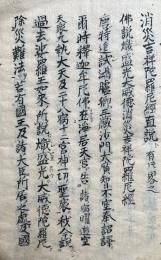 消災吉祥陀羅尼經直説 有序畧之
佛説熾盛光大威德消災吉祥陀羅尼經
唐特進試鴻臚卿三藏沙門大廣智不空奉詔譯
爾時釋迦牟尼佛在淨居天宮告諸宿曜遊空
天眾九執大天及二十八宿十二宮神一切聖衆我今説
過去娑羅王如來所説熾盛光大威德陀羅尼
除災難法若有國王及諸大臣所居之處及國